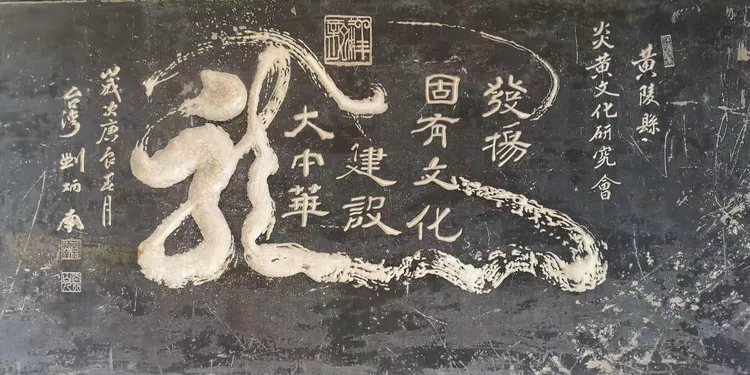 黃陵縣
炎黃文化研究會
發揚
固有文化
建設
大中華
龍
歲次庚辰春月
台灣 劉炳南